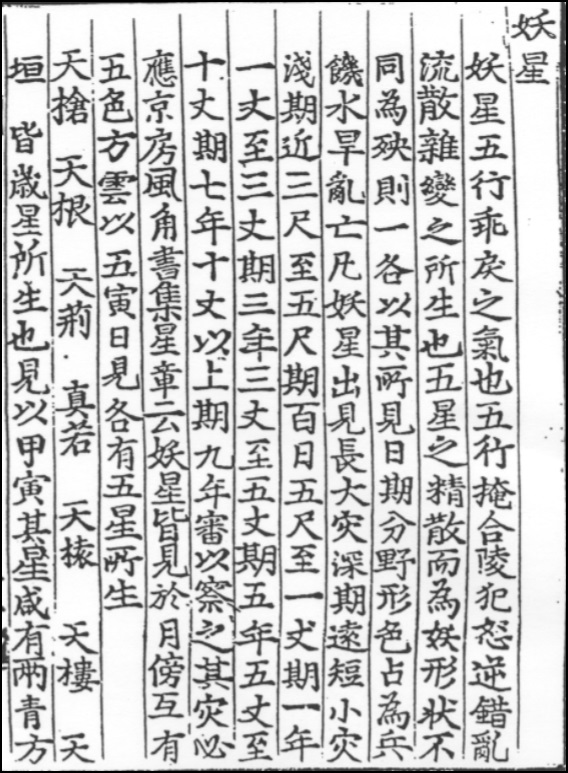 妖星
妖星五行乖戾之氣也五行掩合陵犯怒逆錯亂
流散雜變之所生也五星之精散而為妖形狀不
同為殃則一各以其所見日期分野形色占為兵
饑水旱亂亡凡妖星出見長大灾深期遠短小灾
淺期近三尺至五尺期百日五尺至一丈期一年
一丈至三丈期三年三丈至五丈期五年五丈至
十丈期七年十丈以上期九年審以察之其灾必
應京房風角書集星章云妖星皆見於月傍互有
五色方雲以五寅日見各有五星所生
天槍 天根 天荊 真若 天榬 天樓 天
垣 皆歲星所生也見以甲寅其星咸有兩青方